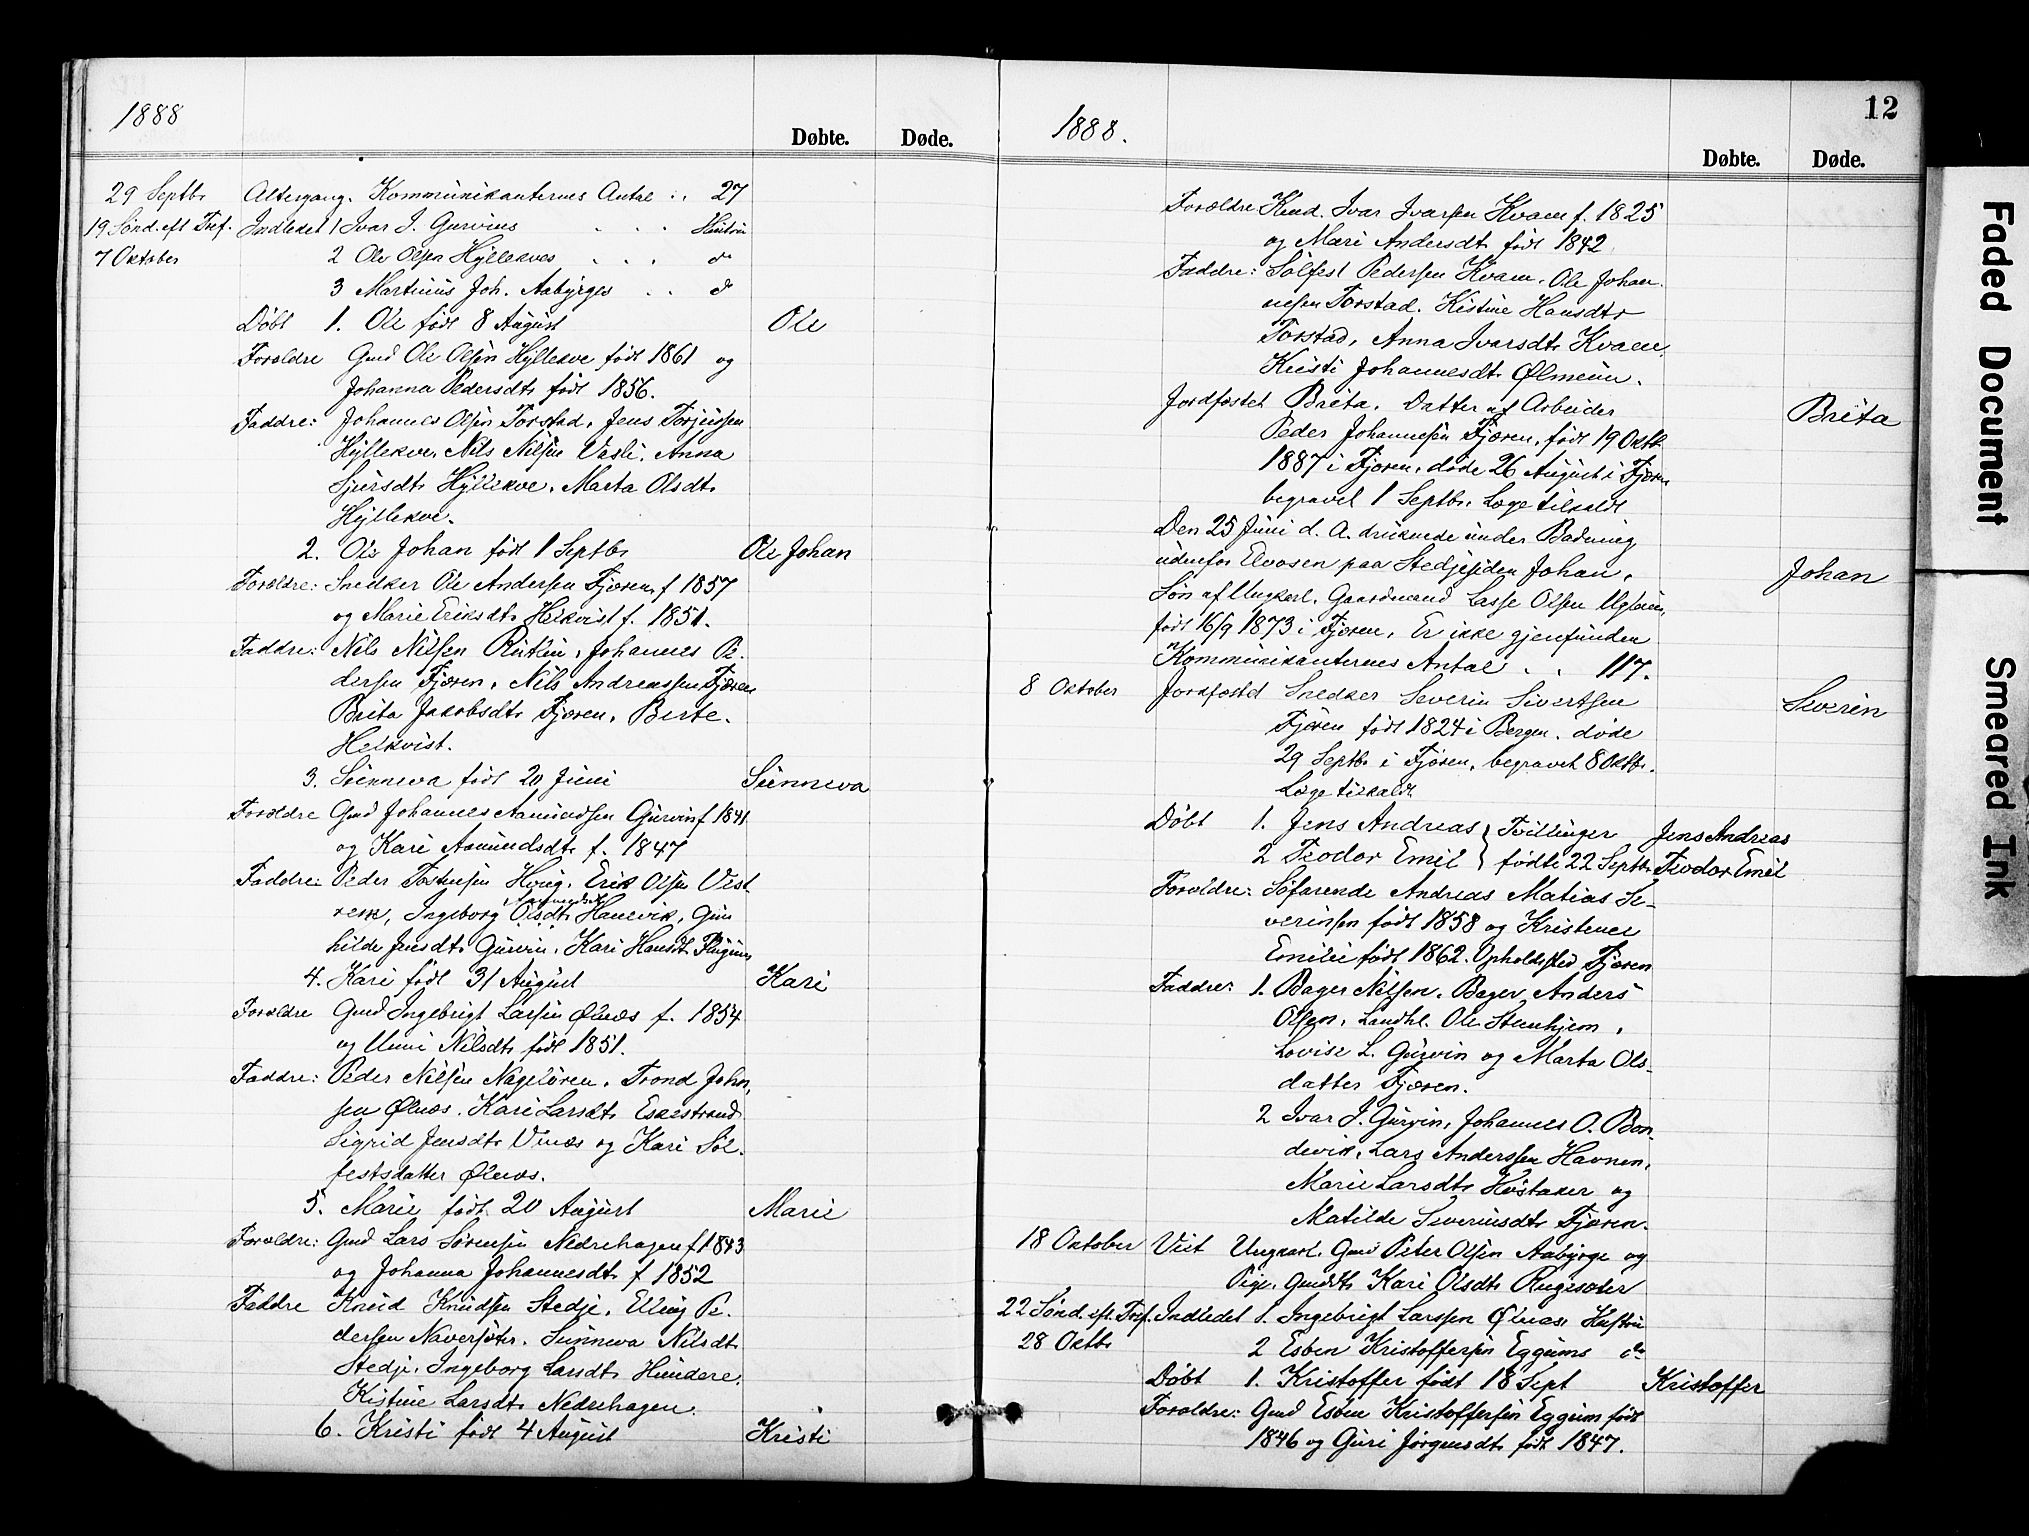 1888
Døbte. Døde.
29 Septbr Altergang. Kommunikanternes Antal . . 27
19 Sønd. eft. Tref. Indledet 1 Ivar J. Gurvins . . . Hustru
7 Oktober 2 Ole Olsen Hyllekves . . . do
3 Martinus Joh. Aabyrges . . do
Døbt 1. Ole født 8 August Ole
Forældre Gmd Ole Olsen Hyllekve født 1861 og
Johanna Pedersdtr født 1856.
Faddre: Johannes Olsen Torstad, Jens Torjussen
Hyllekve, Nils Nilsen Vesli. Anna
Sjursdtr Hyllekve. Marta Olsdtr
Hyllekve.
2. Ole Johan født 1 Septbr Ole Johan
Forældre: Snedker Ole Andersen Fjæren f 1857
og Marie Eriksdtr Helkvist f. 1851.
Faddre: Nils Nilsen Rutlin, Johannes Pe-
dersen Fjæren, Nils Andreassen Fjæren
Brita Jakobsdtr Fjæren, Berte
Helkvist.
3. Sünneva født 20 Juni Sünneva
Forældre Gmd Johannes Aamundsen Gurvin f 1841
og Kari Aamundsdtr f. 1847
Faddre: Peder Torstensen Houg. Erik Olsen Vest
rem, Ingeborg Olsdtr Hanevik, Gun
hilde Jensdtr Gurvin. Kari Hansdtr Flugum
4. Kari født 31 August Kari
Forældre Gmd Ingebrigt Larsen Ølnæs f. 1854
og Unni Nilsdtr født 1851.
Faddre: Peder Nilsen Nageløren. Trond John-
sen Ølnæs. Kari Larsdtr Eskestrand
Sigrid Jensdtr Vinæs og Kari Søl-
festsdatter Ølnæs.
5. Marie født 20 August Marie
Forældre: Gmd Lars Sørensen Nedrehagen f 1843
og Johanna Johannesdtr f 1852
Faddre Knud Knudsen Stedje. Elling Pe-
dersen Naversæter. Sunneva Nilsdtr
Stedje. Ingeborg Larsdtr Hundere.
Kistine Larsdtr Nedrehagen.
6. Kristi født 4 August Kristi
12
1888.
Døbte. Døde.
Forældre Kmd. Ivar Ivarsen Kvam f. 1825
og Mari Andersdtr født 1842
Faddre: Sølfest Pedersen Kvam. Ole Johan
nesen Torstad. Kistine Hansdtr
Torstad, Anna Ivarsdtr Kvam.
Kristi Johannesdtr Ølmeim.
Jordfæstet Brita. Datter af Arbeider Brita
Peder Johannesen Fjæren, født 19 Oktbr
1887 i Fjæren, døde 26 August i Fjæren
begravet 1 Septbr. Læge tilkaldt
Den 25 Juni d. A. druknede under Badning
udenfor Elvosen paa Stedjesiden Johan, Johan
Søn af Ungkarl. Gaardmand Lasse Olsen Uglum,
født 16/9 1873 i Fjæren. Er ikke gjenfunden
Kommunikanternes Antal . . 117.
8 Oktober Jordfæstet Snedker Severin Sivertsen Severin
Fjæren født 1824 i Bergen. døde
29 Septbr i Fjæren, begravet 8 Oktbr.
Læge tilkaldt
Døbt 1. Jens Andreas } Tvillinger Jens Andreas
2 Teodor Emil } fødte 22 Septbr Teodor Emil
Forældre: Søfarende Andreas Matias Se-
verinsen født 1858 og Kristence
Emilie født 1862. Opholdssted Fjæren
Faddre: 1. Bager Nilsen. Bager Anders
Olsen, Landhl. Ole Stenhjem,
Lovise L. Gurvin og Marta Ols-
datter Fjæren.
2 Ivar J. Gurvin, Johannes O. Bon-
devik, Lars Anderssen Havnen,
Marie Larsdtr Høstaker og
Matilde Severinsdtr Fjæren.
18 Oktober Viet Ungkarl. Gmd Peter Olsen Aabyrge og
Pige, Gmdtr Kari Olsdtr Rugesæter
22 Sønd. eft. Tref. Indledet 1. Ingebrigt Larssen Ølnæs Hustru
28 Oktbr 2 Esben Kristoffersen Eggums do
Døbt 1. Kristoffer født 18 Sept Kristoffer
Forældre: Gmd Esben Kristoffersen Eggum født
1846 og Guri Jørgensdtr født 1847.
Faded Document
Smeared Ink